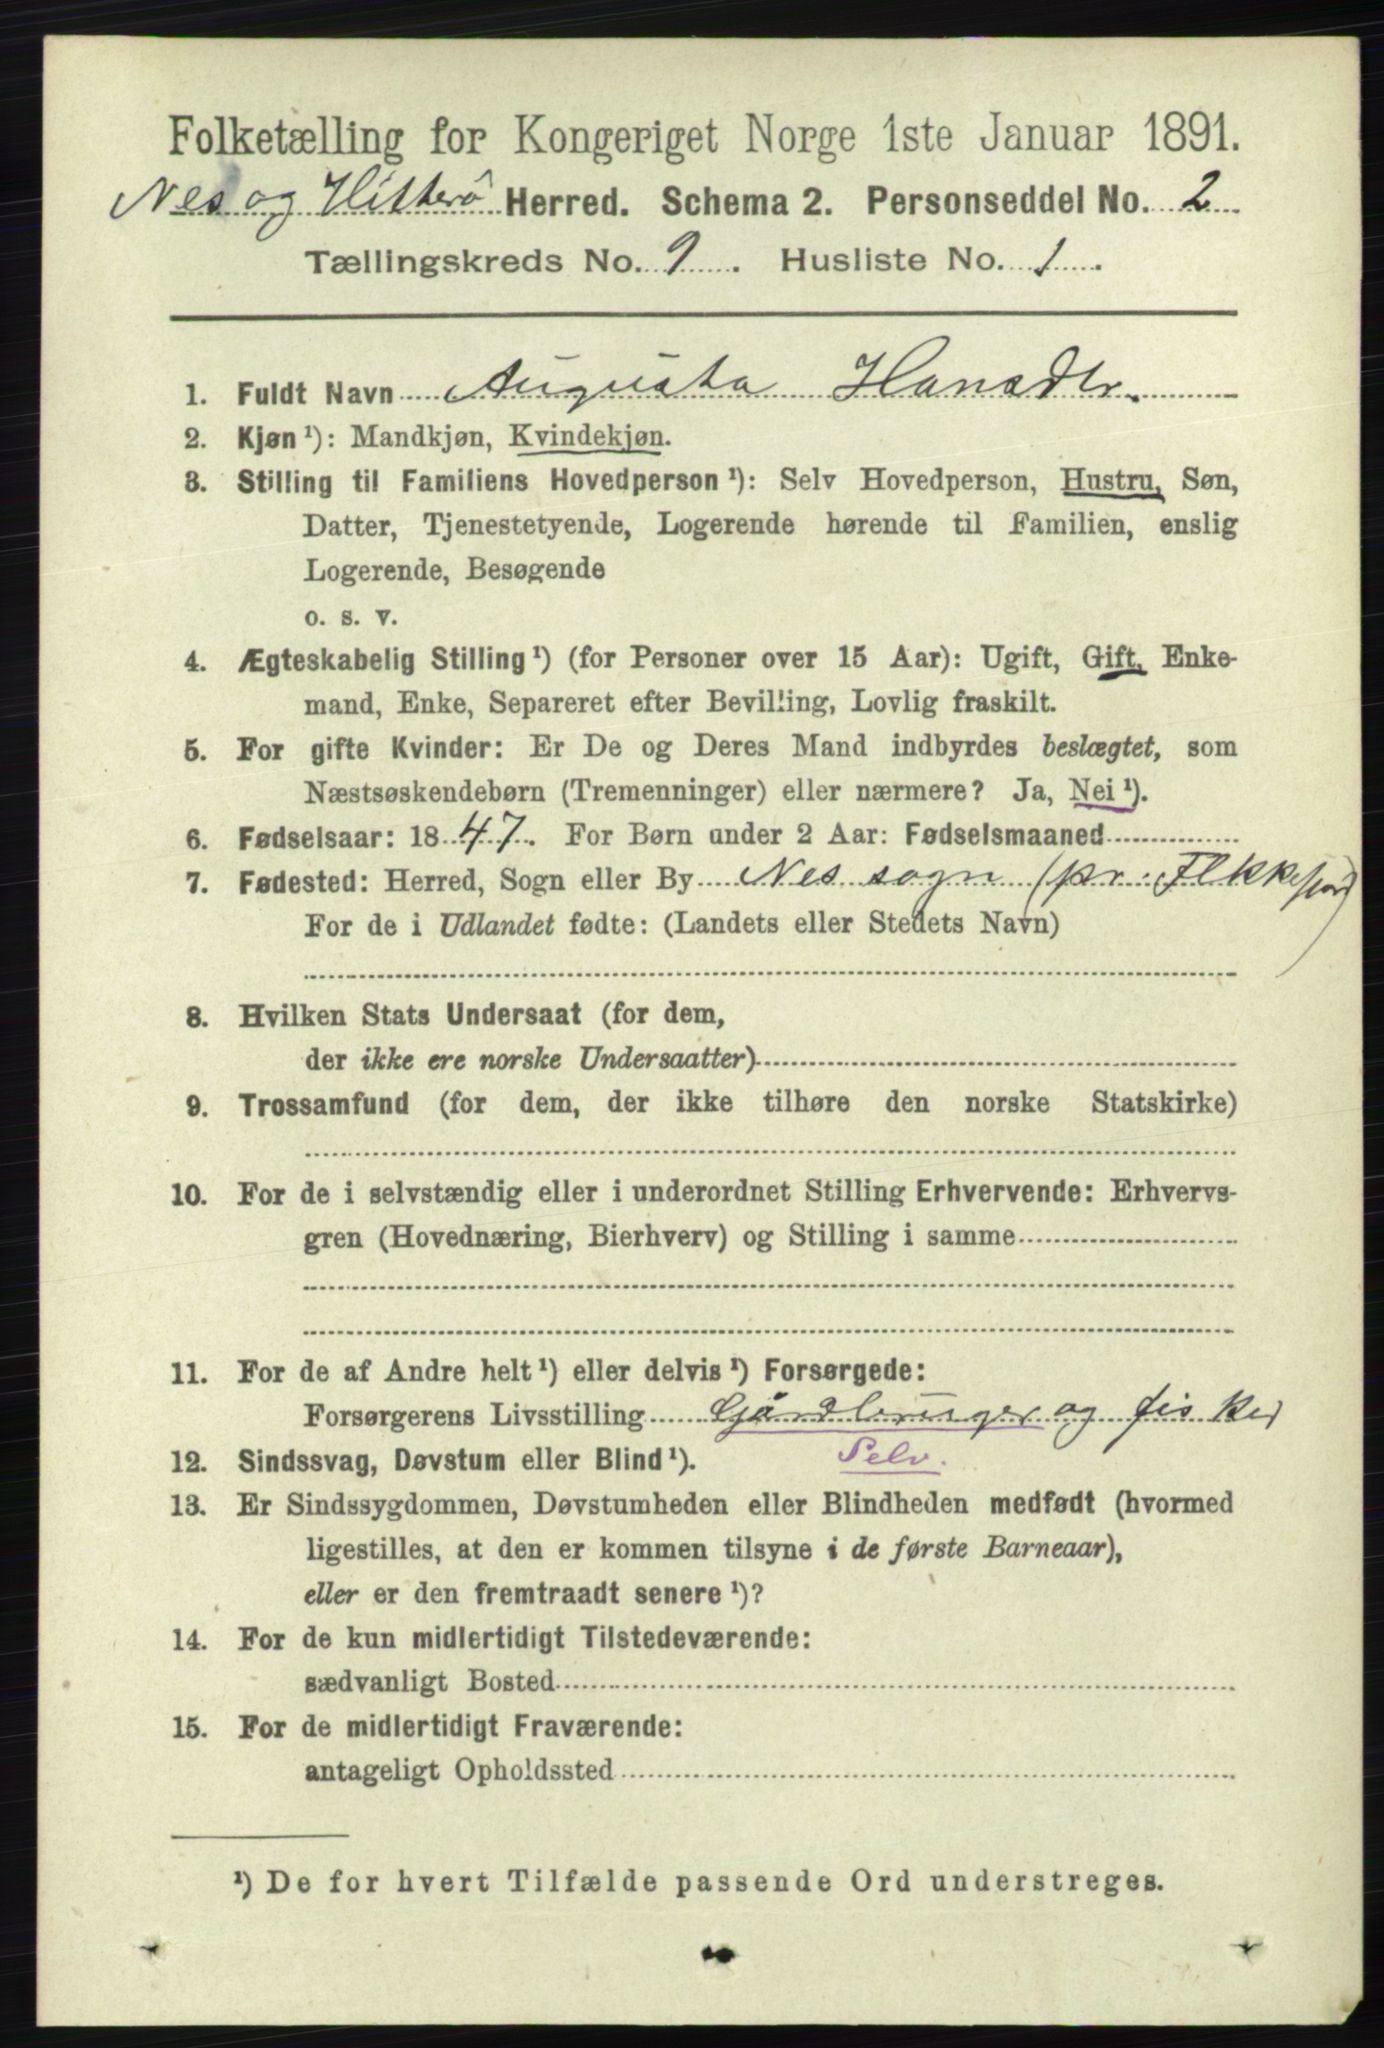 Folketælling for Kongeriget Norge 1ste Januar 1891.
Nes og Hitterö Herred. Schema 2. Personseddel No. 2
Tællingskreds No. 9. Husliste No. 1.
1. Fuldt Navn Augusta Hansdtr.
2. Kjøn ¹): Mandkjøn, Kvindekjøn.
3. Stilling til Familiens Hovedperson ¹): Selv Hovedperson, Hustru, Søn,
Datter, Tjenestetyende, Logerende hørende til Familien, enslig
Logerende, Besøgende
o. s. v.
4. Ægteskabelig Stilling ¹) (for Personer over 15 Aar): Ugift, Gift, Enke-
mand, Enke, Separeret efter Bevilling, Lovlig fraskilt.
5. For gifte Kvinder: Er De og Deres Mand indbyrdes beslægtet, som
Næstsøskendebørn (Tremenninger) eller nærmere? Ja, Nei ¹).
6. Fødselsaar: 1847. For Børn under 2 Aar: Fødselsmaaned
7. Fødested: Herred, Sogn eller By Nes sogn (pr. Flekkefjord)
For de i Udlandet fødte: (Landets eller Stedets Navn)
8. Hvilken Stats Undersaat (for dem,
der ikke ere norske Undersaatter)
9. Trossamfund (for dem, der ikke tilhøre den norske Statskirke)
10. For de i selvstændig eller i underordnet Stilling Erhvervende: Erhvervs-
gren (Hovednæring, Bierhverv) og Stilling i samme
11. For de af Andre helt ¹) eller delvis ¹) Forsørgede:
Forsørgerens Livsstilling Gårdbruger og fisker
12. Sindssvag, Døvstum eller Blind ¹). Selv.
13. Er Sindssygdommen, Døvstumheden eller Blindheden medfødt (hvormed
ligestilles, at den er kommen tilsyne i de første Barneaar),
eller er den fremtraadt senere ¹)?
14. For de kun midlertidigt Tilstedeværende:
sædvanligt Bosted
15. For de midlertidigt Fraværende:
antageligt Opholdssted
¹) De for hvert Tilfælde passende Ord understreges.